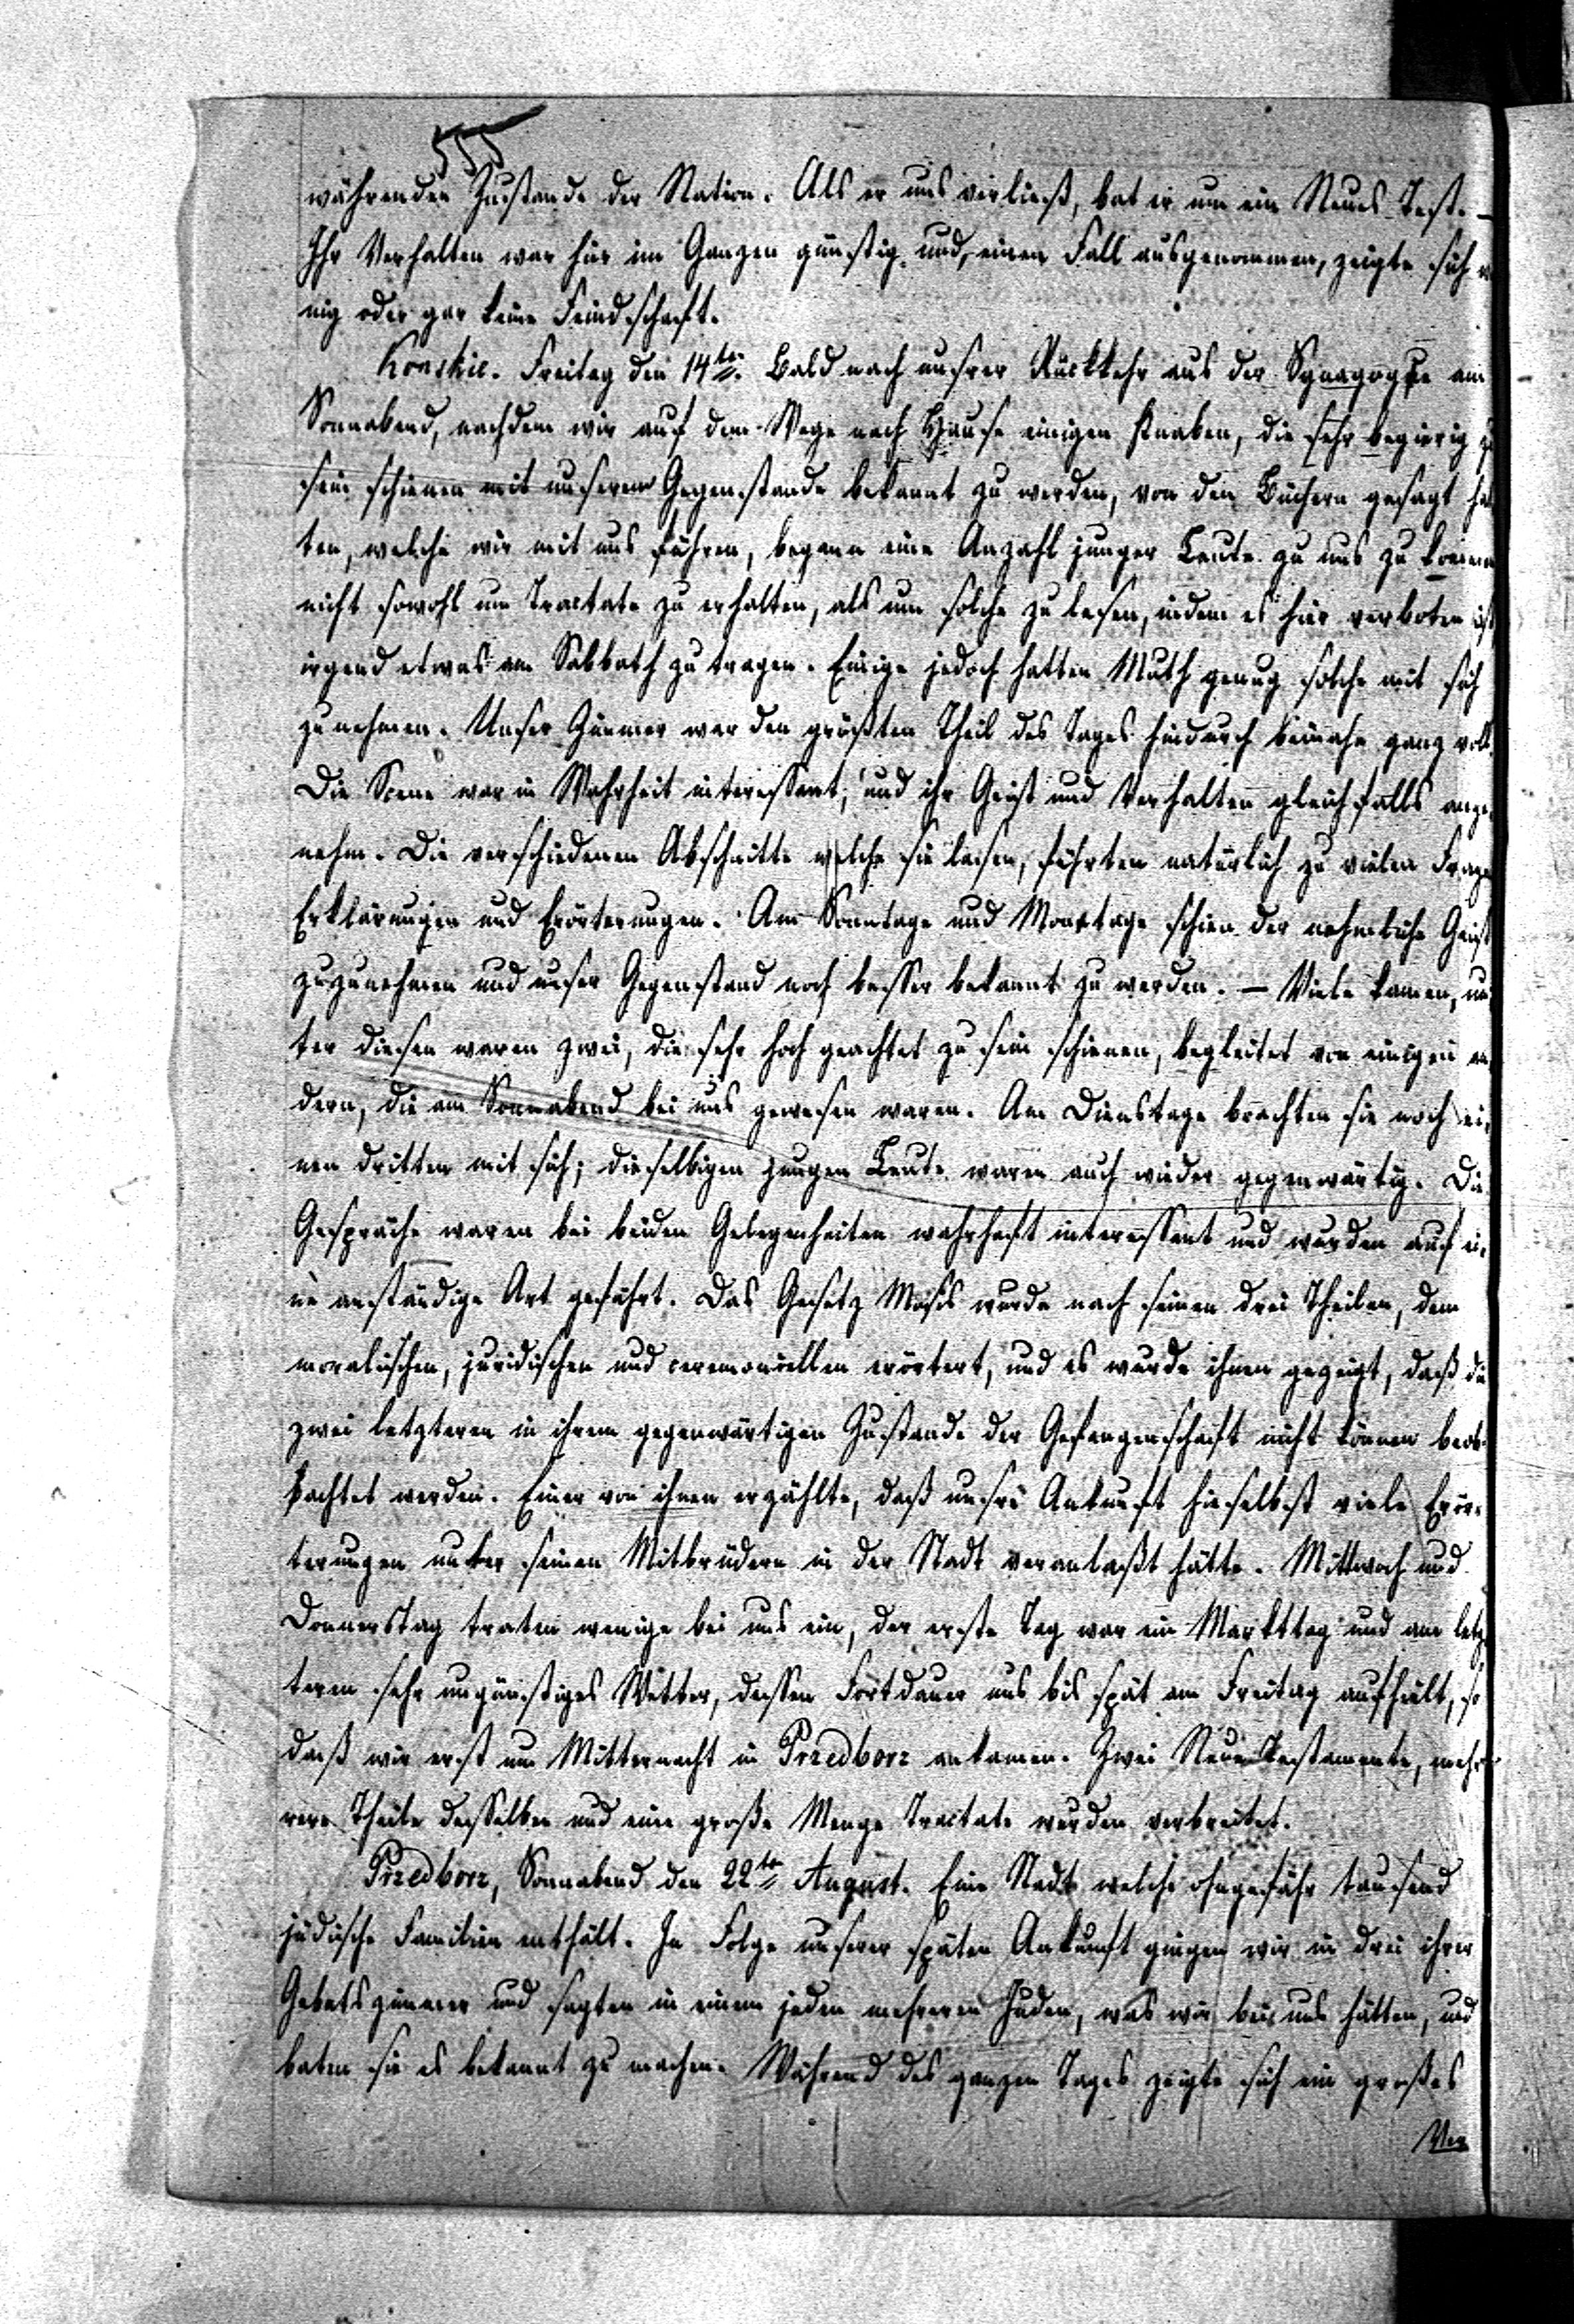 555
währenden Zustande der Nation. Als er uns verließ, bat er um ein Neues Test. –
Ihr Verhalten war hier im Ganzen günstig, und, einen Fall ausgenommen, zeigte sich we
nig oder gar keine Feindschaft.
Konskie. Freitag den 14ten. Bald nach unsrer Rückkehr aus der Synagoge am
Sonnabend, nachdem wir auf dem Wege nach Hause einigen Knaben, die sehr begierig zu
sein schienen mit unserem Gegenstande bekannt zu werden, von den Büchern gesagt hat
ten, welche wir mit uns führen, begann eine Anzahl junger Leute zu uns zu kommen
nicht sowohl um Tractate zu erhalten, als um solche zu lesen, indem es hier verboten ist
irgend etwas am Sabbath zu tragen. Einige jedoch hatten Muth genug solche mit sich
zu nehmen. Unser Zimmer war den größten Theil des Tages hindurch beinahe ganz voll.
Die Scene war in Wahrheit interessant, und ihr Geist und Verhalten gleichfalls ange-
nehm. Die verschiedenen Abschnitte welche sie lasen, führten natürlich zu vielen Fragen
Erklärungen und Erörterungen. Am Sonntage und Montage schien der nehmliche Geist
zuzunehmen und unser Gegenstand noch besser bekannt zu werden. – Viele kamen, un
ter diesen waren zwei, die sehr hoch geachtet zu sein schienen, begleitet von einigen an
dern, die am Sonnabend bei uns gewesen waren. Am Dienstage brachten sie noch ei-
nen dritten mit sich; dieselbigen jungen Leute waren auch wieder gegenwärtig. Die
Gespräche waren bei beiden Gelegenheiten wahrhaft interessant und wurden auf ei-
ne anständige Art geführt. Das Gesetz Mosis wurde nach seinen drei Theilen, dem
moralischen, juridischen und ceremoniellen erörtert, und es wurde ihnen gezeigt, daß die
zwei letzteren in ihrem gegenwärtigen Zustande der Gefangenschaft nicht können beob-
bachtet werden. Einer von ihnen erzählte, daß unsre Ankunft hieselbst viele Erör-
terungen unter seinen Mitbrüdern in der Stadt veranlaßt hätte. Mittwoch und
Donnerstag traten wenige bei uns ein, der erste Tag war ein Markttag und am letz-
teren sehr ungünstiges Wetter, dessen Fortdauer uns bis spät am Freitag aufhielt, so
daß wir erst um Mitternacht in Przedborz ankamen. Zwei Neue Testamente, meh-
rere Theile desselben und eine große Menge Tractate wurden verbreitet.
Przedborz, Sonnabend den 22ten August. Eine Stadt welche ohngefähr tausend
jüdische Familien enthält. In Folge unserer späten Ankunft gingen wir in drei ihrer
Gebetszimmer und sagten in einem jeden mehreren Juden, was wir bei uns hätten, und
baten sie es bekannt zu machen. Während des ganzen Tages zeigte sich ein großes
Ver